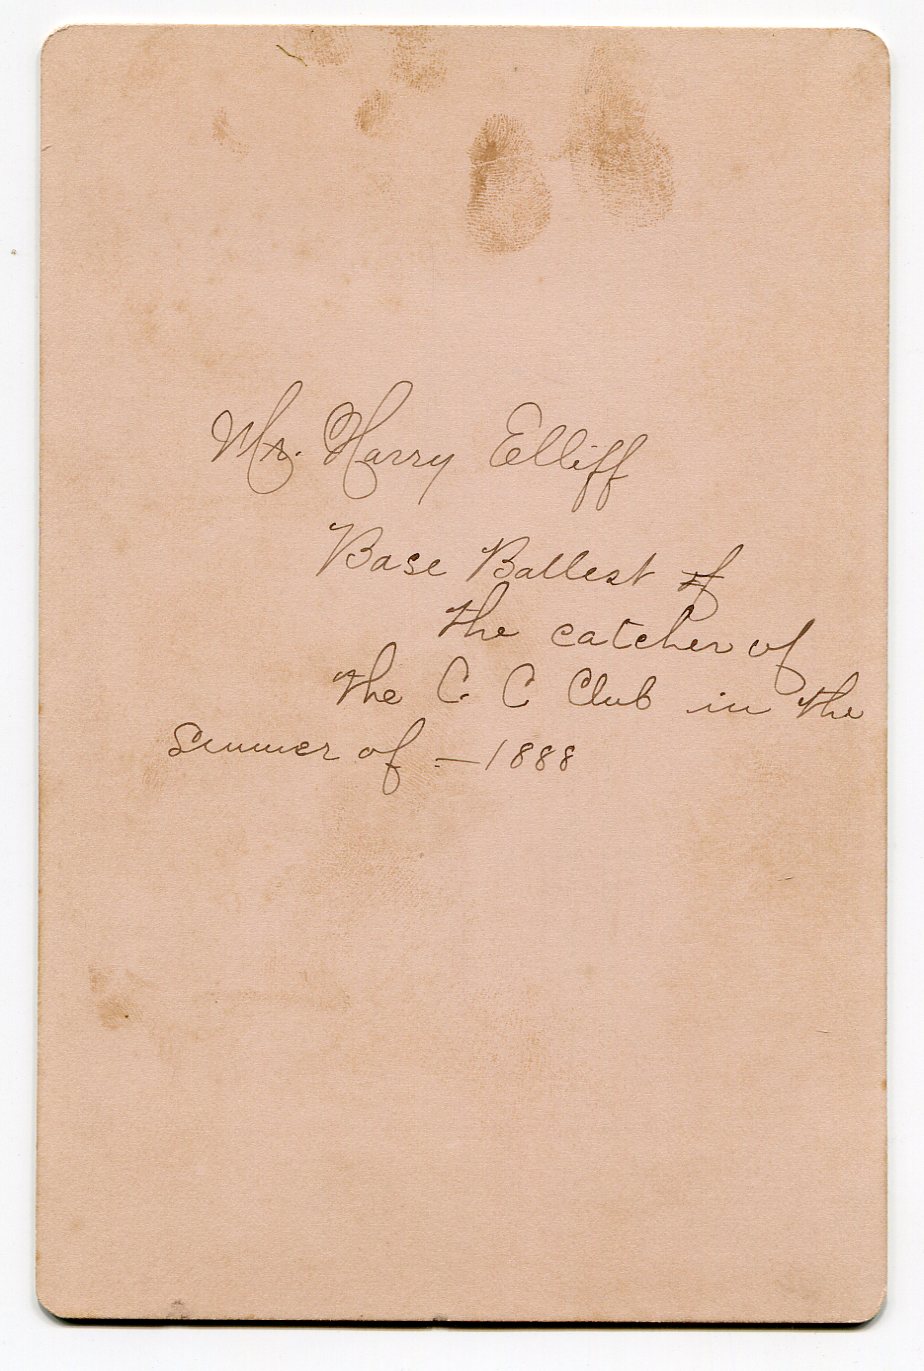 Mr. Harry Elliff
Base Ballest of
the catcher of
the C. C Club in the
Summer of - 1888